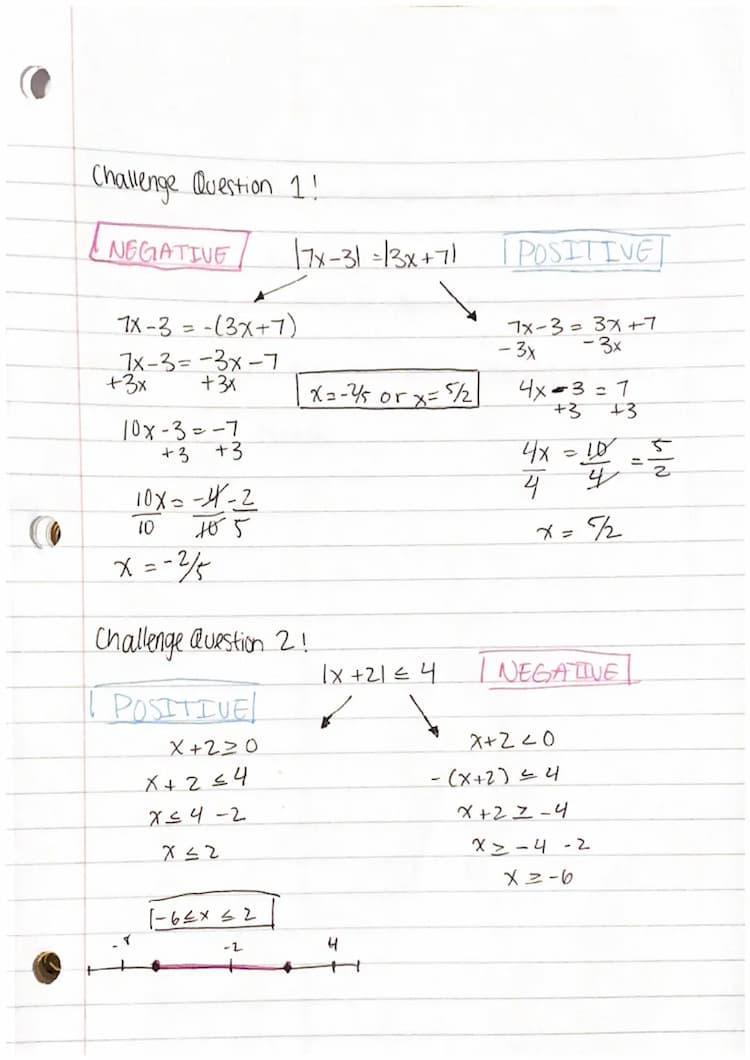 Challenge Question 1!
NEGATIVE |7x-3| = |3x+7| POSITIVE
7x-3 = -(3x+7)
7x-3 = -3x-7
+3x +3x
10x-3 = -7
+3 +3
10x = -4 -2
10 10 5
x = -2/5
x = -2/5 or x = 5/2
7x-3 = 3x+7
-3x -3x
4x-3 = 7
+3 +3
4x = 10 = 5
4 4 2
x = 5/2
Challenge Question 2!
|x+2| ≤ 4
POSITIVE
x+2 ≥ 0
x+2 ≤ 4
x ≤ 4 -2
x ≤ 2
NEGATIVE
x+2 < 0
-(x+2) ≤ 4
x+2 ≥ -4
x ≥ -4 -2
x ≥ -6
-6 ≤ x ≤ 2
-2 4